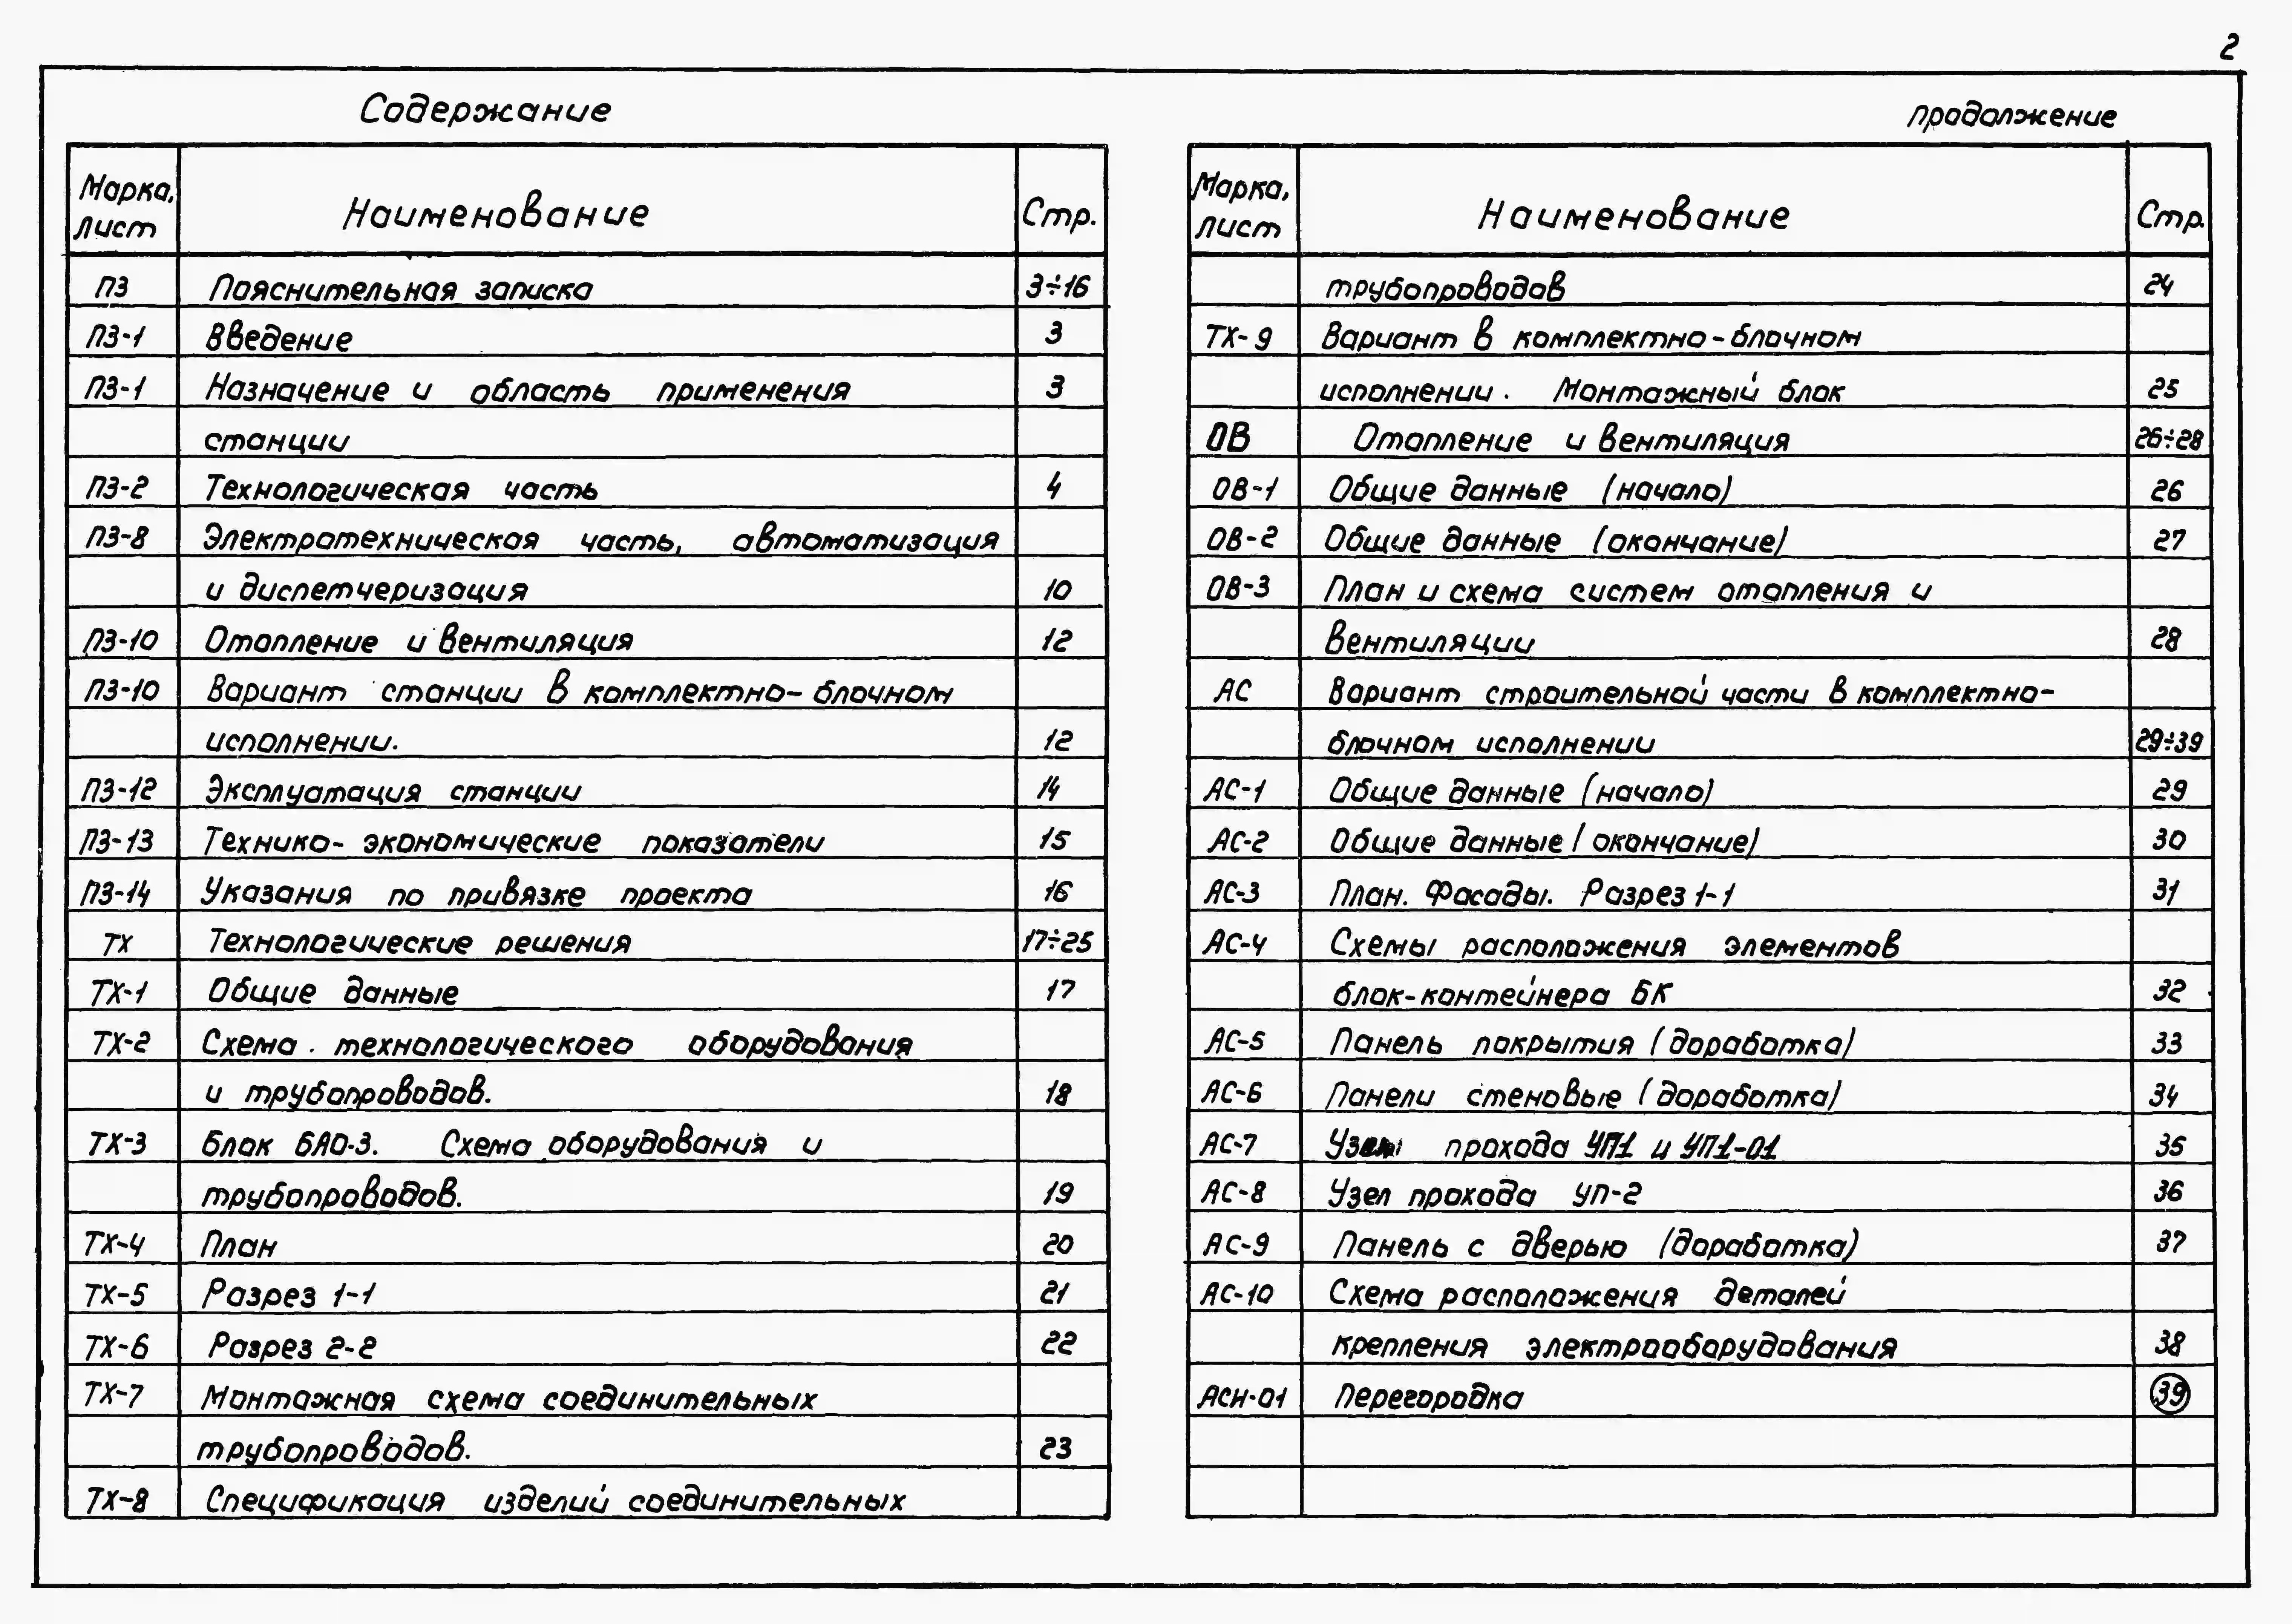 2
Содержание
Марка, лист Наименование Стр.
ПЗ Пояснительная записка 3÷16
ПЗ-1 Введение 3
ПЗ-1 Назначение и область применения 3
станции
ПЗ-2 Технологическая часть 4
ПЗ-8 Электротехническая часть, автоматизация
и диспетчеризация 10
ПЗ-10 Отопление и вентиляция 12
ПЗ-10 Вариант станции в комплектно-блочном
исполнении. 12
ПЗ-12 Эксплуатация станции 14
ПЗ-13 Технико-экономические показатели 15
ПЗ-14 Указания по привязке проекта 16
ТХ Технологические решения 17÷25
ТХ-1 Общие данные 17
ТХ-2 Схема технологического оборудования
и трубопроводов. 18
ТХ-3 Блок БАО-3. Схема оборудования и
трубопроводов. 19
ТХ-4 План 20
ТХ-5 Разрез 1-1 21
ТХ-6 Разрез 2-2 22
ТХ-7 Монтажная схема соединительных
трубопроводов. 23
ТХ-8 Спецификация изделий соединительных
продолжение
Марка, лист Наименование Стр.
трубопроводов 24
ТХ-9 Вариант в комплектно-блочном
исполнении. Монтажный блок 25
ОВ Отопление и вентиляция 26÷28
ОВ-1 Общие данные (начало) 26
ОВ-2 Общие данные (окончание) 27
ОВ-3 План и схема систем отопления и
вентиляции 28
АС Вариант строительной части в комплектно-
блочном исполнении 29÷39
АС-1 Общие данные (начало) 29
АС-2 Общие данные (окончание) 30
АС-3 План. Фасады. Разрез 1-1 31
АС-4 Схемы расположения элементов
блок-контейнера БК 32
АС-5 Панель покрытия (доработка) 33
АС-6 Панели стеновые (доработка) 34
АС-7 прохода УП1 и УП1-01 35
АС-8 Узел прохода УП-2 36
АС-9 Панель с дверью (доработка) 37
АС-10 Схема расположения деталей
крепления электрооборудования 38
АСИ-01 Перегородка 39